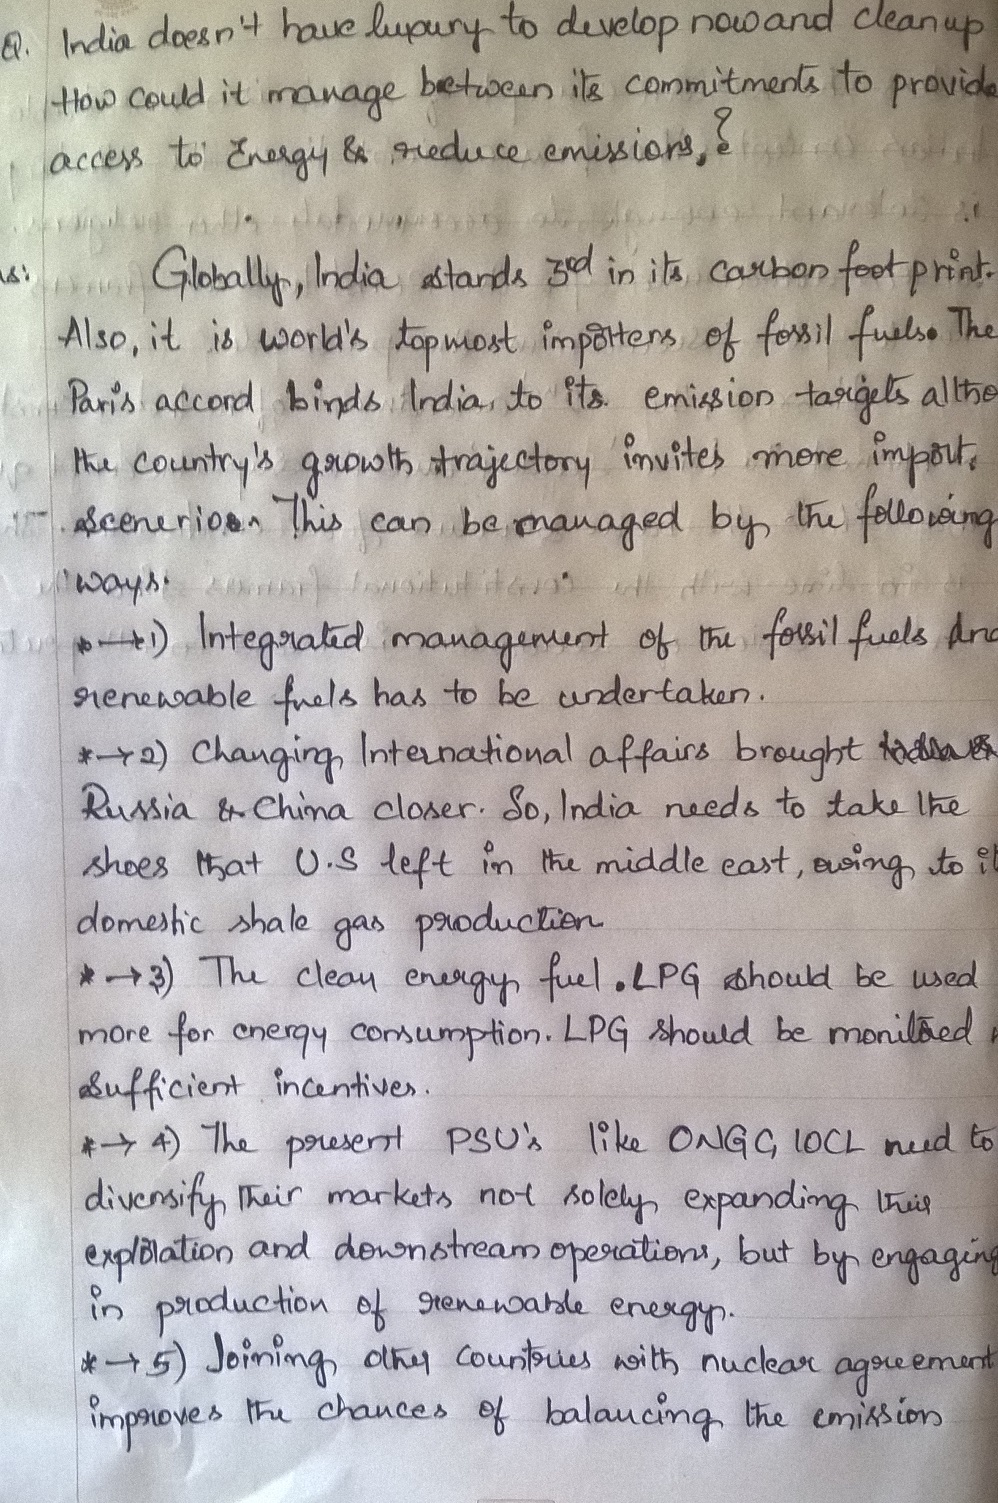 Q. India doesn't have luxury to develop now and clean up
How could it manage between its commitments to provide
access to Energy & reduce emissions,?
Globally, India stands 3rd in its carbon foot print.
Also, it is world's topmost importers of fossil fuels. The
Paris accord binds India, to its emission targets altho
the country's growth trajectory invites more import.
scenerios. This can be managed by the following
ways.
*→1) Integrated management of the fossil fuels and
renewable fuels has to be undertaken.
*→2) Changing International affairs brought
Russia & China closer. So, India needs to take the
shoes that U.S left in the middle east, owing to it
domestic shale gas production
*→3) The clean energy fuel. LPG should be used
more for energy consumption. LPG should be monitored
sufficient incentives.
*→4) The present PSU's like ONGC, IOCL need to
diversify their markets not solely expanding their
exploration and downstream operations, but by engaging
in production of renewable energy.
*→5) Joining other countries with nuclear agreement
improves the chances of balancing the emission